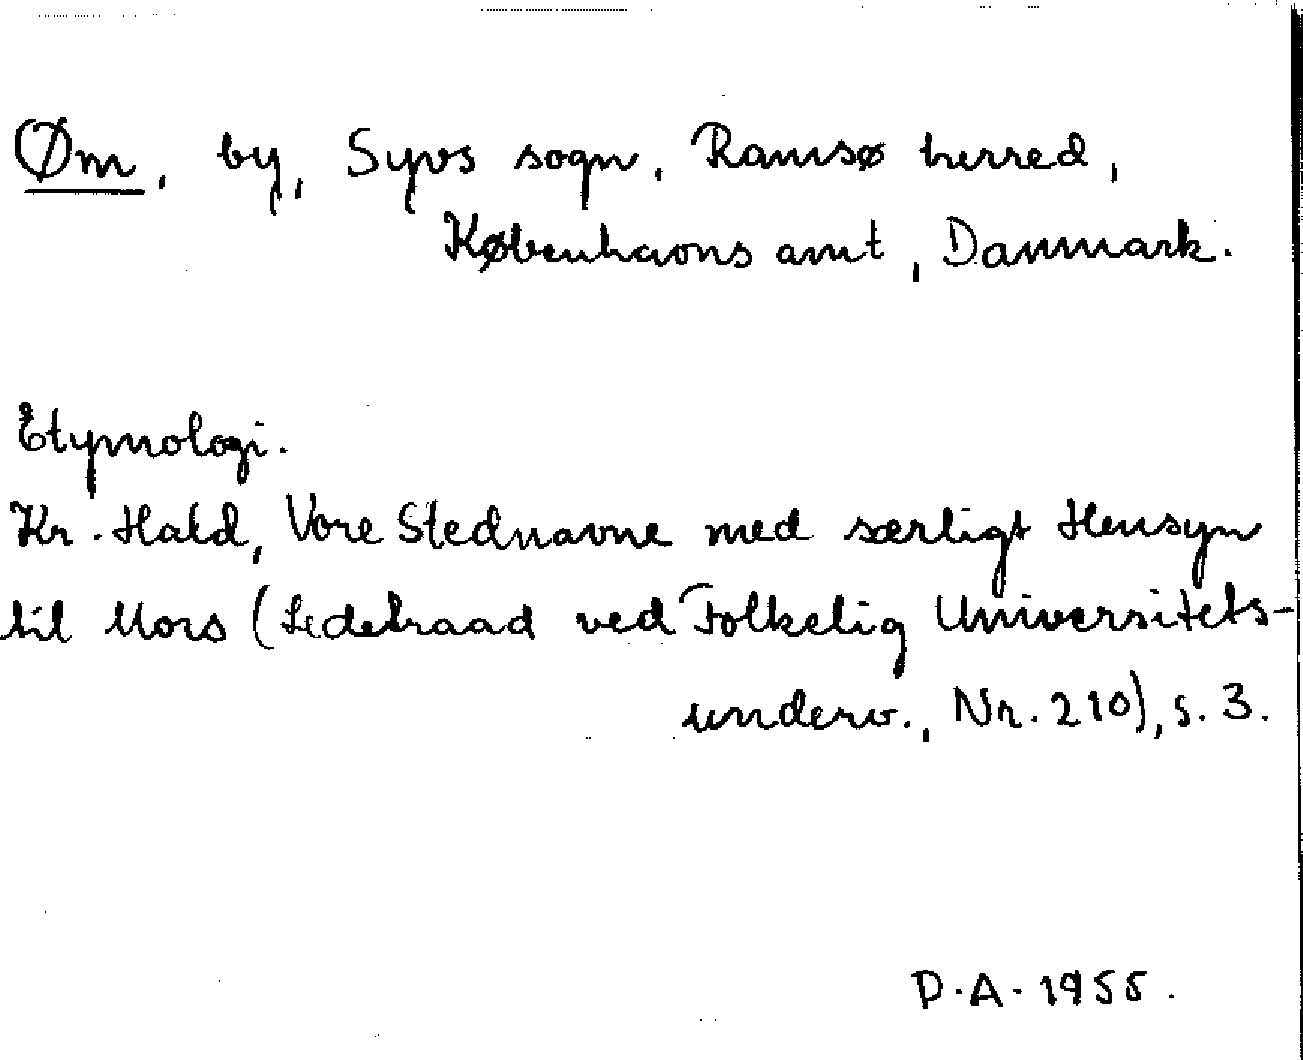 Øm, by, Syvs sogn, Ramsø herred,
Københavns amt, Danmark.
Etymologi.
Kr. Hald, Vore Stednavne med særligt Hensyn
til Mors (Ledetraad ved Folkelig Universitets-
underv., Nr. 210), s. 3.
D.A. 1955.